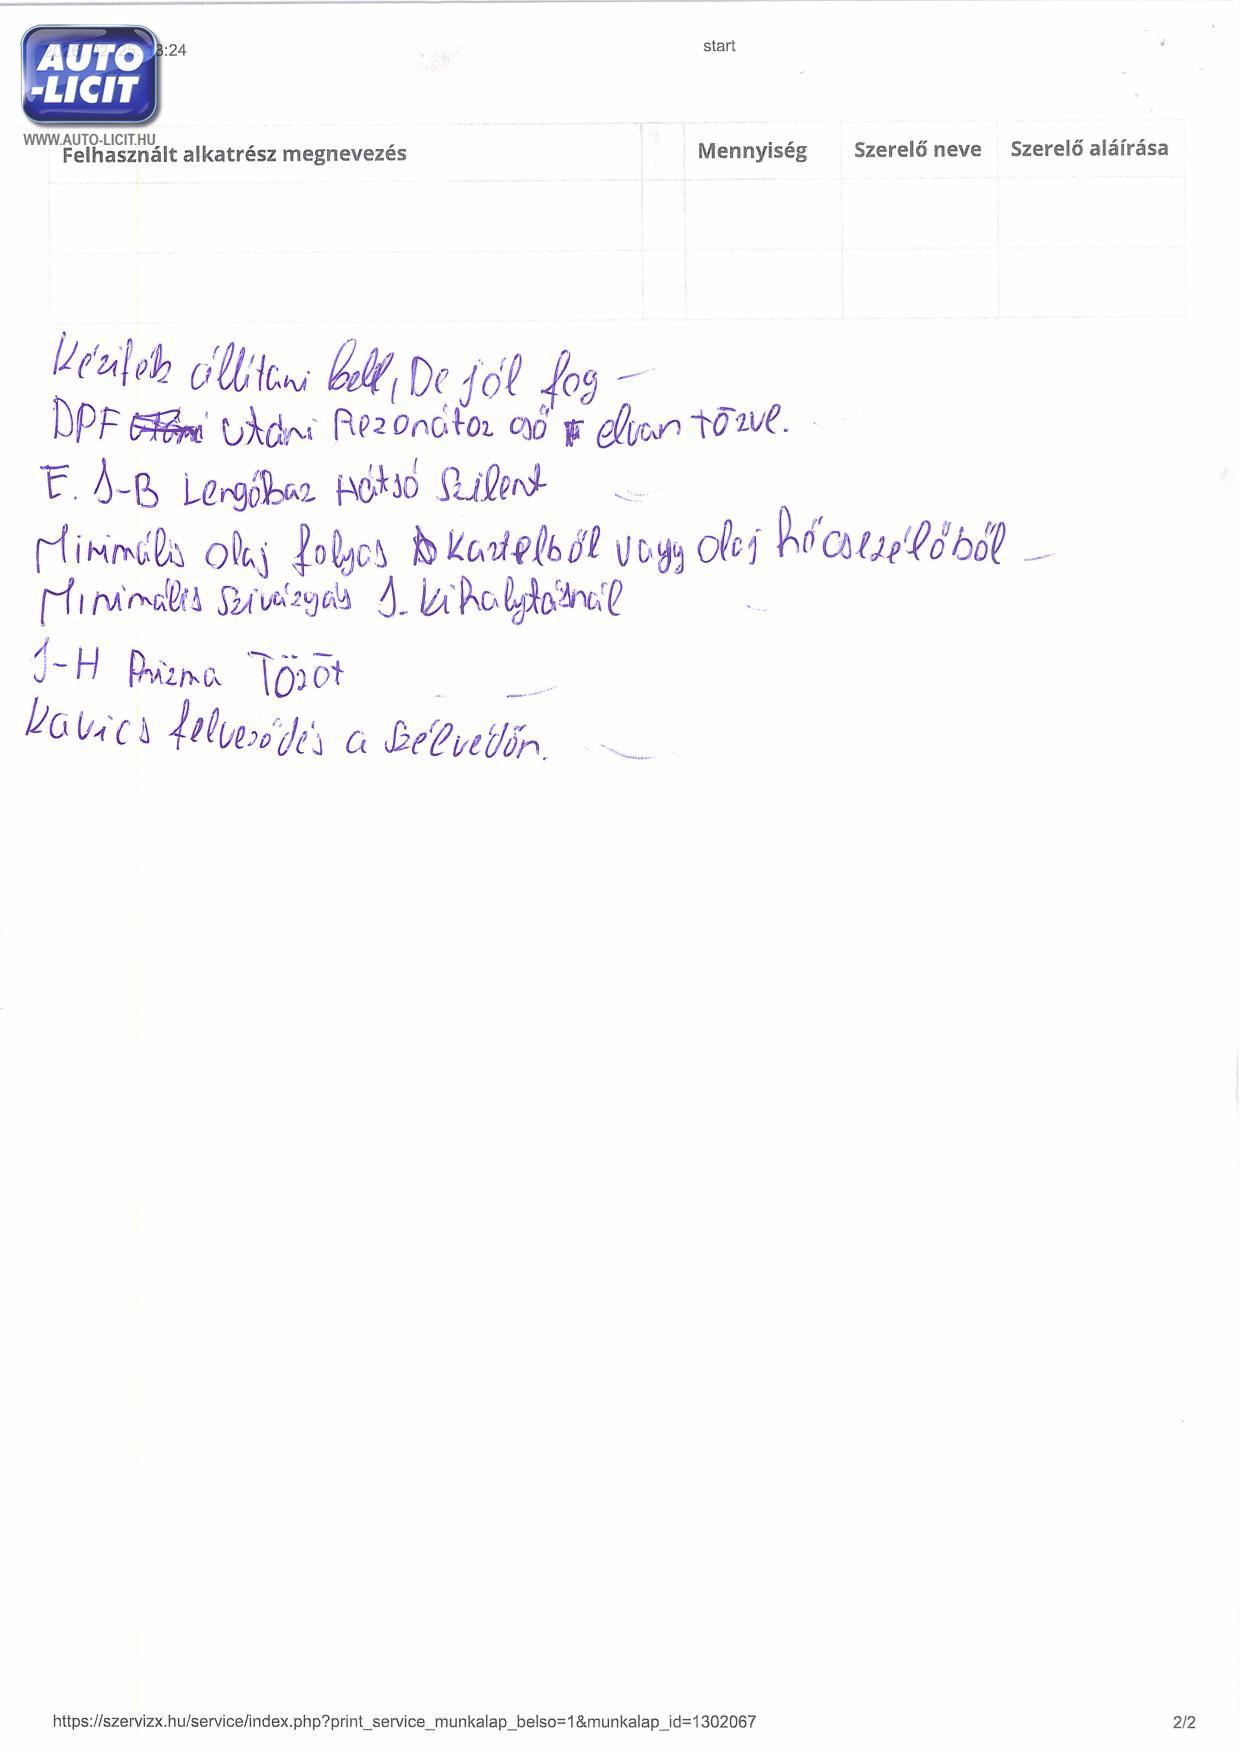 AUTO
-LICIT
WWW.AUTO-LICIT.HU
3:24
start
Felhasznált alkatrész megnevezés Mennyiség Szerelő neve Szerelő aláírása
Kézifék állítani kell, De jól fog
DPF utáni Rezonátor cső elvan törve.
E. J-B Lengőkar Hátsó Szilent
Minimális olaj folyás Karterből vagy olaj hőcserélőből
Minimális szivárgás J. kihajtásnál
J-H Prizma Töröt
Kavics felverődés a szélvédőn.
https://szervizx.hu/service/index.php?print_service_munkalap_belso=1&munkalap_id=1302067 2/2